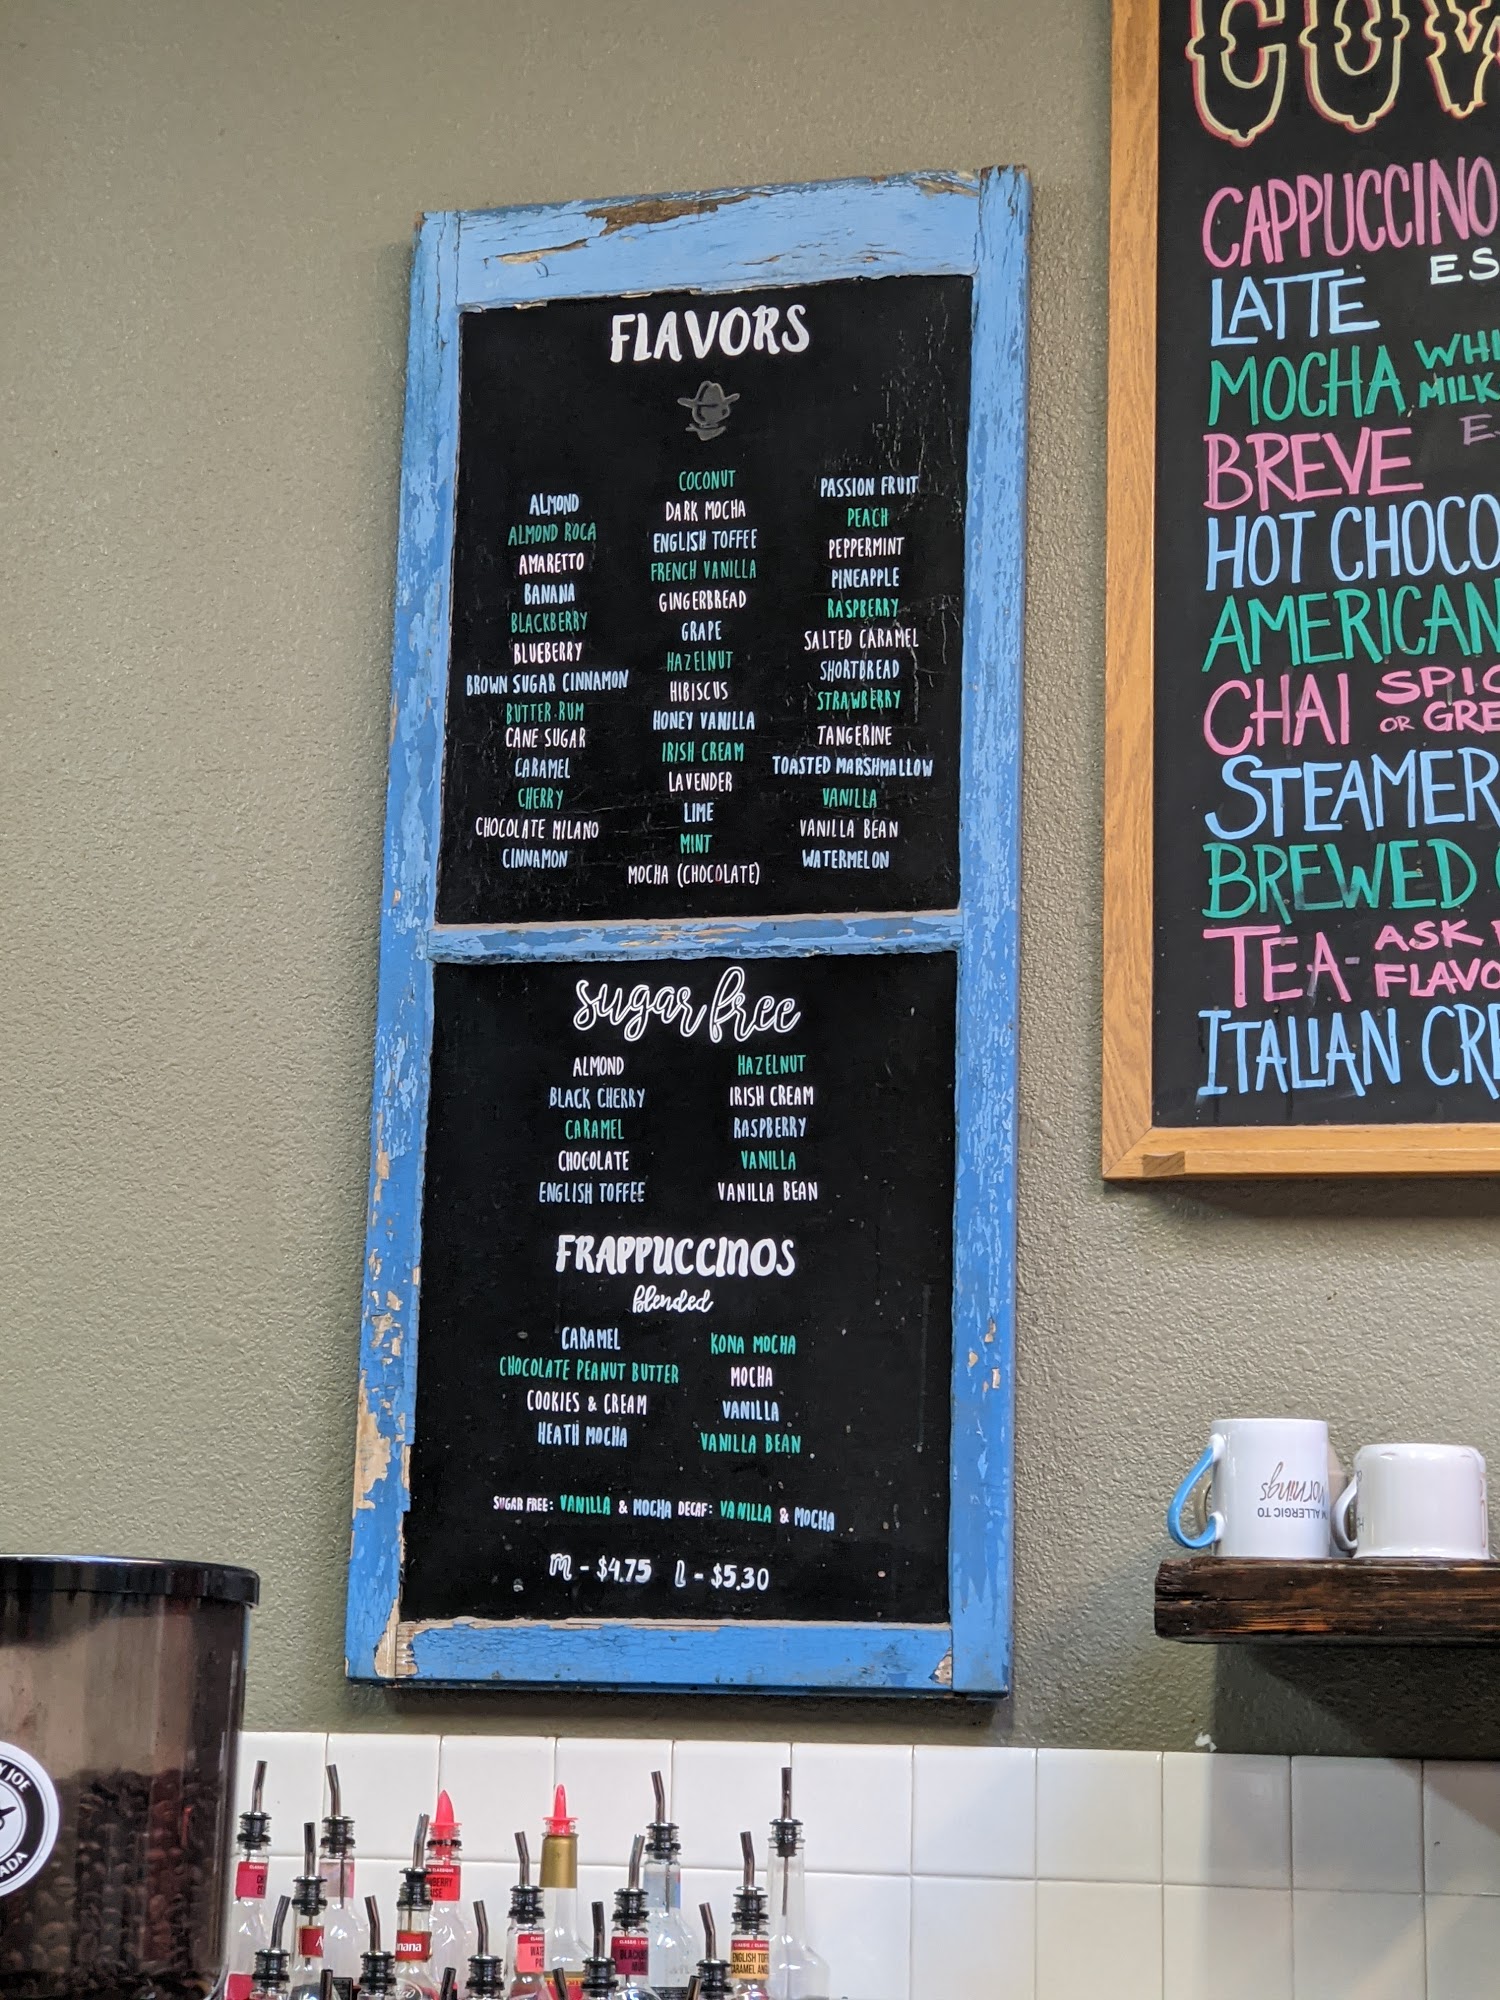 FLAVORS
ALMOND
ALMOND ROCA
AMARETTO
BANANA
BLACKBERRY
BLUEBERRY
BROWN SUGAR CINNAMON
BUTTER RUM
CANE SUGAR
CARAMEL
CHERRY
CHOCOLATE MILANO
CINNAMON
COCONUT
DARK MOCHA
ENGLISH TOFFEE
FRENCH VANILLA
GINGERBREAD
GRAPE
HAZELNUT
HIBISCUS
HONEY VANILLA
IRISH CREAM
LAVENDER
LIME
MINT
MOCHA (CHOCOLATE)
PASSION FRUIT
PEACH
PEPPERMINT
PINEAPPLE
RASPBERRY
SALTED CARAMEL
SHORTBREAD
STRAWBERRY
TANGERINE
TOASTED MARSHMALLOW
VANILLA
VANILLA BEAN
WATERMELON
sugar free
ALMOND
BLACK CHERRY
CARAMEL
CHOCOLATE
ENGLISH TOFFEE
HAZELNUT
IRISH CREAM
RASPBERRY
VANILLA
VANILLA BEAN
FRAPPUCCINOS
blended
CARAMEL
CHOCOLATE PEANUT BUTTER
COOKIES & CREAM
HEATH MOCHA
KONA MOCHA
MOCHA
VANILLA
VANILLA BEAN
SUGAR FREE: VANILLA & MOCHA DECAF: VANILLA & MOCHA
M - $4.75 L - $5.30
COW
CAPPUCCINO
ES
LATTE
MOCHA WHI
MILK
BREVE
HOT CHOCO
AMERICAN
CHAI SPIC
OR GRE
STEAMER
BREWED
TEA- ASK
FLAVO
ITALIAN CRE
I'M ALLERGIC TO
MORNINGS
JOE
ADA
ENGLISH TOFF
CARAMEL